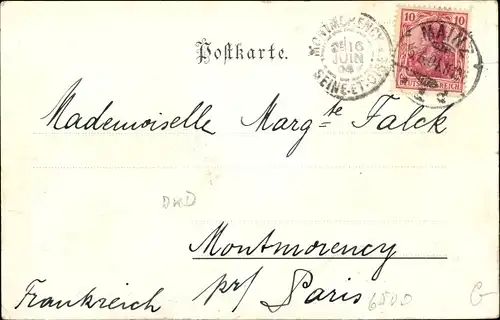 Postkarte.
MONTMORENCY
16
JUIN
04
SEINE-ET-OISE
10 10
MAIN
DEUTSCHES REICH
Mademoiselle Margte Falck
DKD
Montmorency
prs/ Paris
Frankreich
6500
G